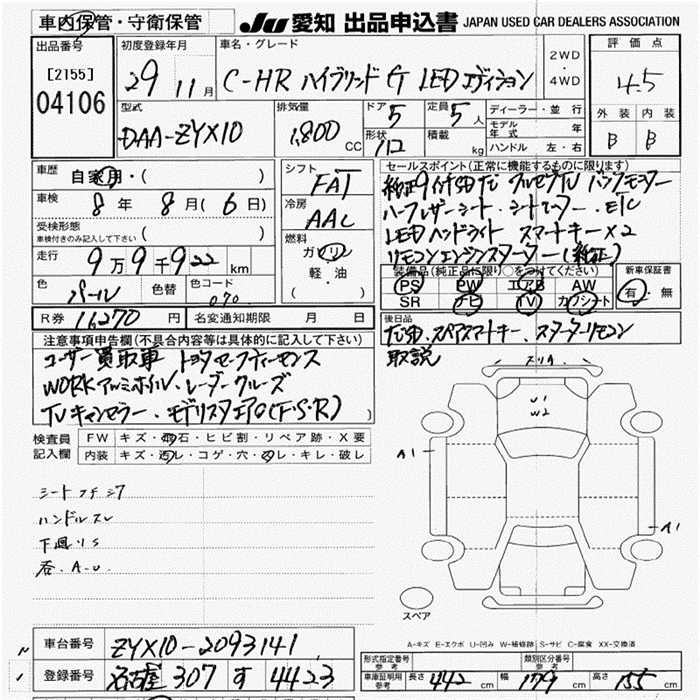 車内保管・守衛保管
JU 愛知 出品申込書 JAPAN USED CAR DEALERS ASSOCIATION
出品番号
[2155]
04106
初度登録年月
29 11月
車名・グレード
C-HR ハイブリッド G LEDエディション
2WD
・
4WD
評価点
4.5
外装 内装
B B
型式
DAA-ZYX10
排気量
1,800 CC
ドア 5
形状 112
定員 5人
積載 kg
ディーラー・並行
モデル年式 年
ハンドル 左・右
車歴
自家用・( )
車検
8年 8月(6日)
受検形態
車検付きのみ記入して下さい ( )
走行
9万9千922km
色 パール 色替 色コード 070
R券 11,270円 名変通知期限 月 日
シフト
FAT
冷房
AAC
燃料
ガソリン
軽・油
( )
セールスポイント(正常に機能するものに限ります)
純正9インチSDナビ フルセグTV バックモニター
ハーフレザーシート・シートヒーター・ETC
LEDヘッドライト スマートキー×2
リモコンエンジンスターター(純正)
装備品(純正品に限り○をつけてください)
PS PW エアB AW
SR ナビ TV カワシート
新車保証書
有・無
後日品
ナビSD・スペアスマートキー・スターターリモコン
取説
注意事項申告欄(不具合内容等は具体的に記入して下さい)
ユーザー買取車 トヨタセーフティーセンス
WORKアルミホイル・レーダークルーズ
TVキャンセラー・モデリスタエアロ(F・S・R)
検査員記入欄
FW キズ・飛石・ヒビ割・リペア跡・X要
内装 キズ・汚レ・コゲ・穴・スレ・キレ・破レ
シートフチシワ
ハンドルスレ
下廻リS
スリキ
W1
W2
A1
A1
スペア
A-キズ E-エクボ U-凹み W-補修跡 S-サビ C-腐食 XX-交換済
車台番号 ZYX10-2093141
登録番号 名古屋 307 す 4423
形式指定番号
参考
類別区分番号
参考
車庫証明用参考 長さ 442 cm 幅 179 cm 高さ 155 cm